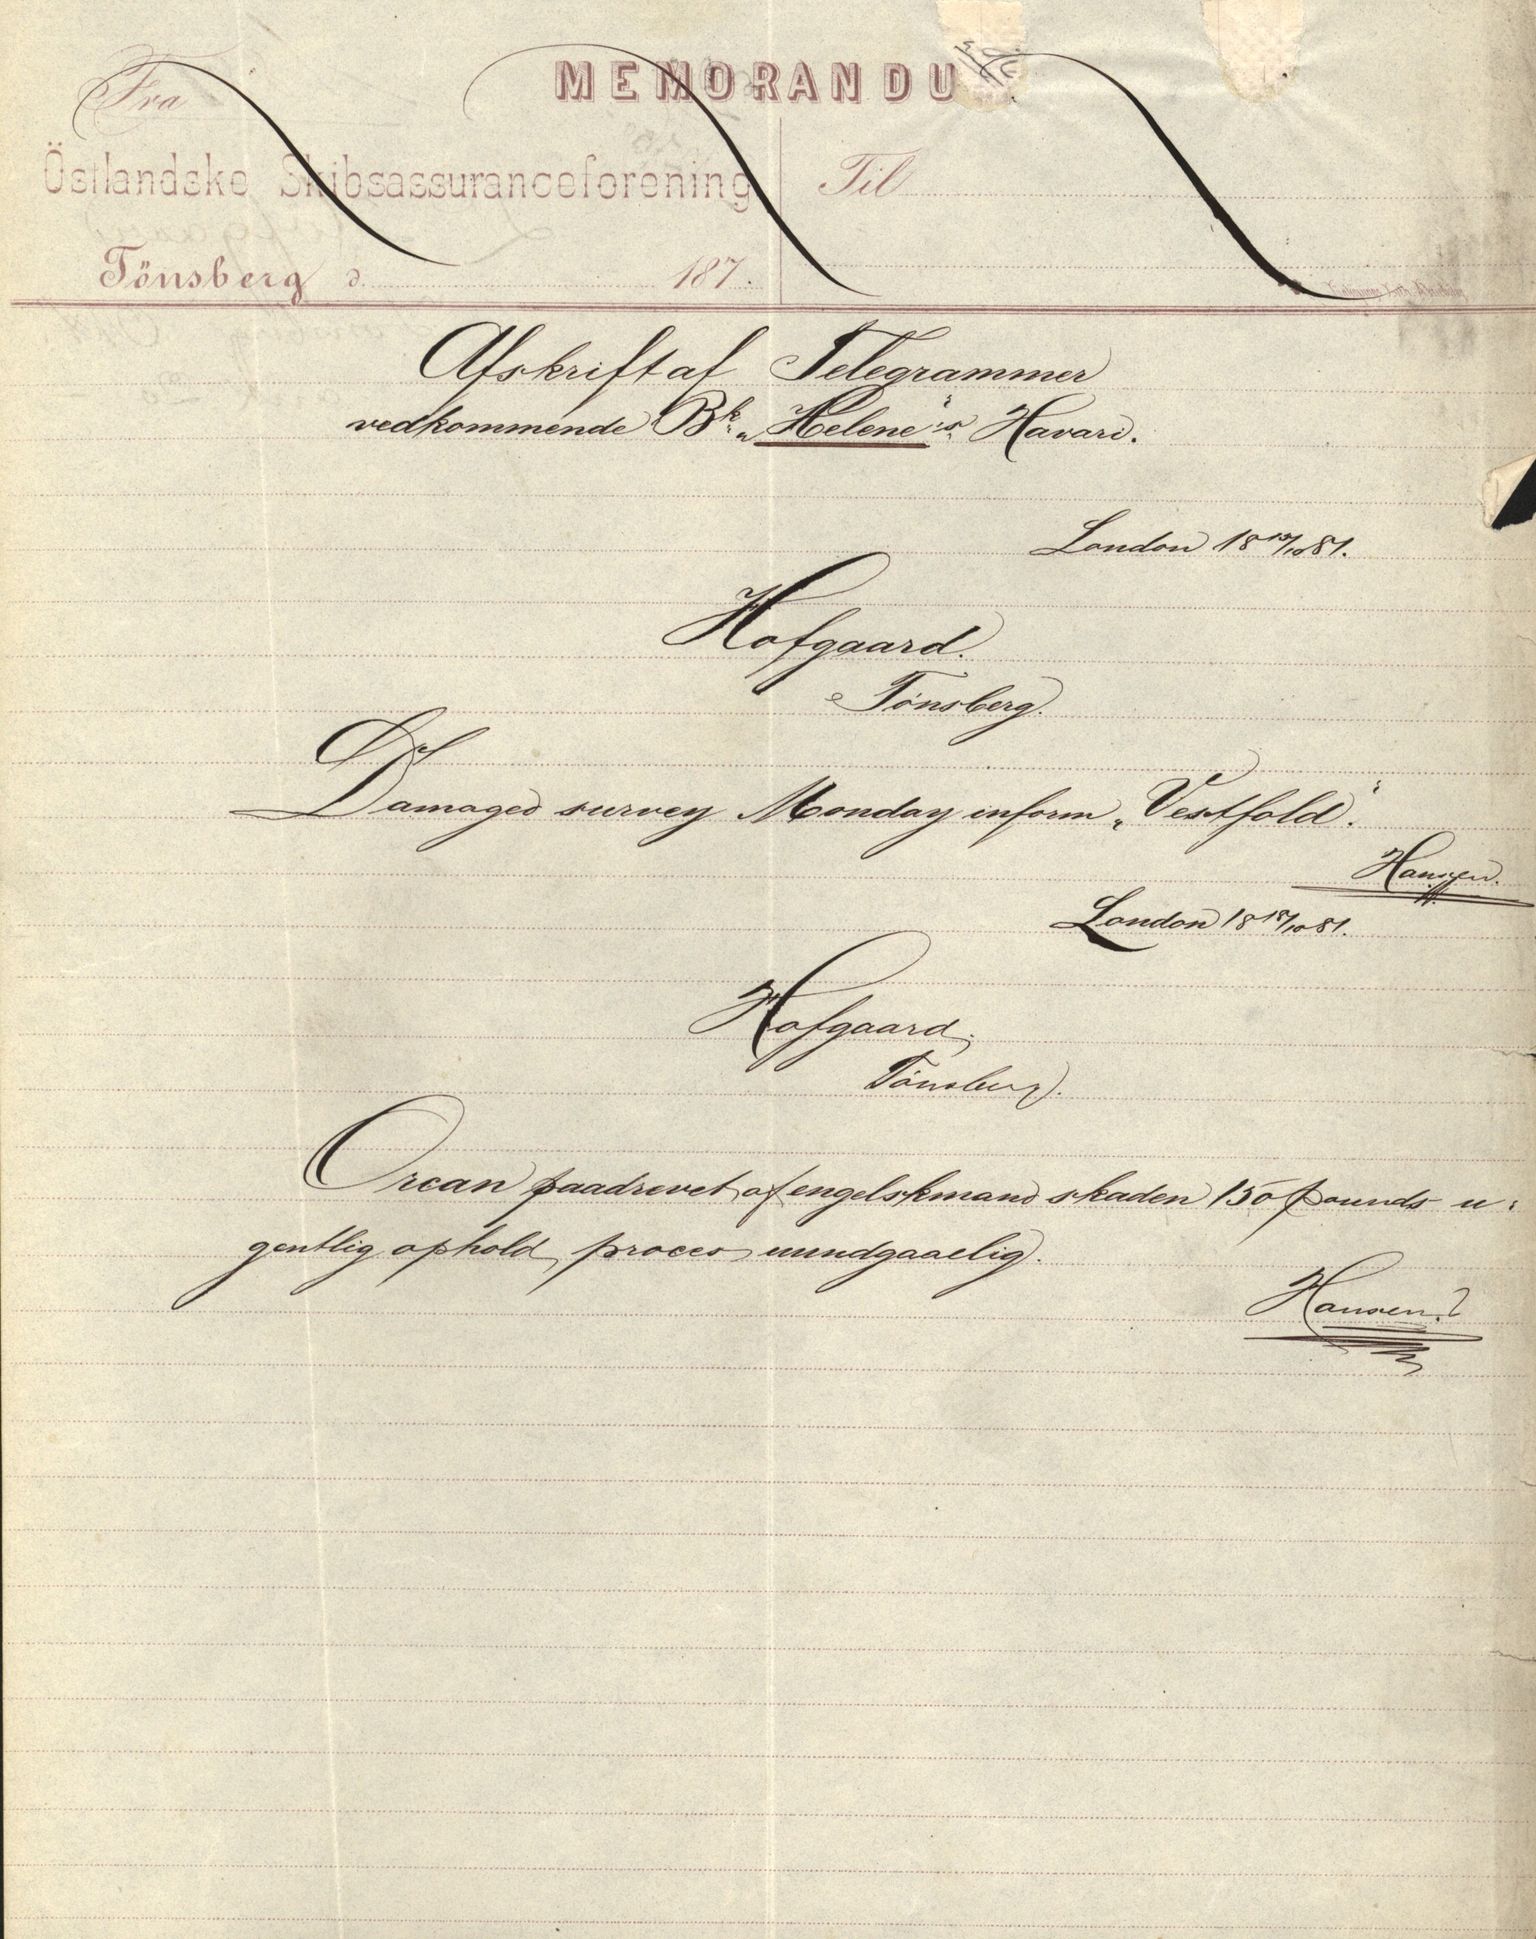 MEMORANDU
Fra
Östlandske Skibsassuranceforening
Til
Tönsberg d. 187 .
Afskrift af Telegrammer
vedkommende Bk. „Helene"'s Havari.
London 18 15/10 81.
Hofgaard.
Tönsberg.
Damaged survey Monday inform „Vestfold".
Hansen.
London 18 18/10 81.
Hofgaard,
Tönsberg.
Orcan paadrevet af engelskmand skaden 150 pounds u-
gentlig ophold, proces uundgaaelig.
Hansen.